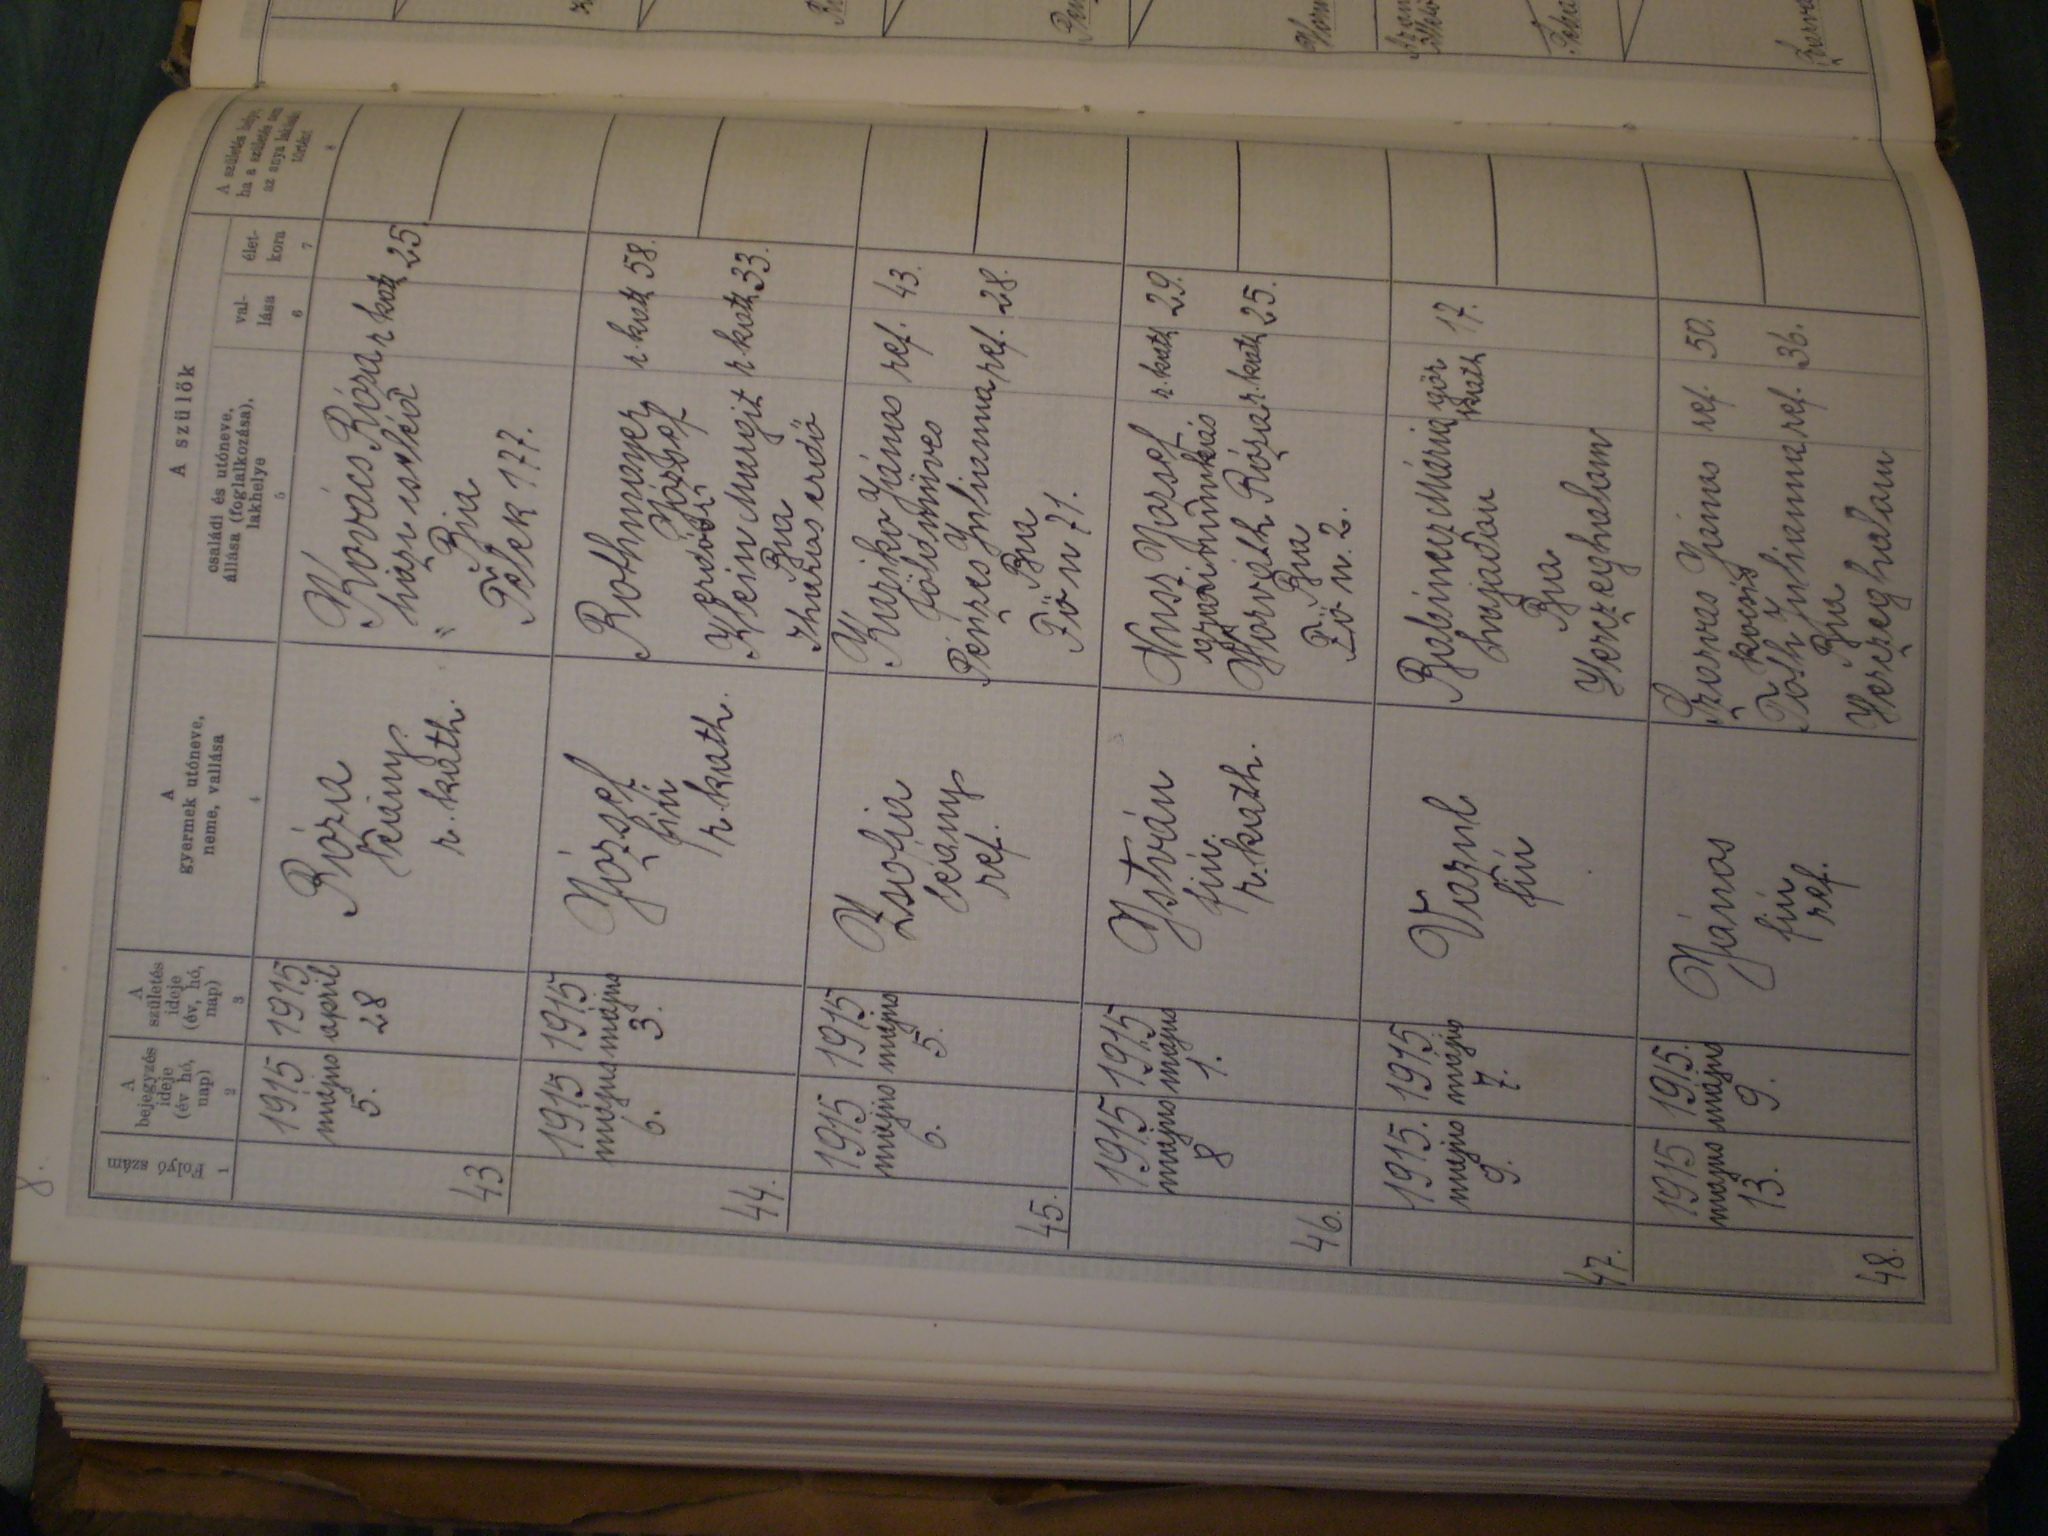 8.
Folyó szám
1
A
bejegyzés
ideje
(év hó,
nap)
2
A
születés
ideje
(év, hó,
nap)
3
A
gyermek utóneve,
neme, vallása
4
A szülők
családi és utóneve,
állása (foglalkozása),
lakhelye
5
val-
lása
6
élet-
kora
7
A születés helye,
ha a születés nem
az anya lakhelyén
történt
8
43
1915
május
5.
1915
april
28
Róza
leány
r. kath.
Kovács Róza r kath 25.
házi cseléd
Bia
Telek 177.
44.
1915
május
6.
1915
május
3.
József
fiú
r. kath.
Rothmayer
József r. kath 58.
erdőőr
Klein Margit r kath 33.
Bia
Iharos erdő
45.
1915
május
6.
1915
május
5.
Zsófia
leány
ref.
Kuzsko János ref. 43.
földmüves
Pénzes Julianna ref. 28.
Bia
Fő u 71.
46.
1915
május
8
1915
május
1.
István
fiú
r. kath.
József r. kath 29.
gyári munkás
Horváth Róza r. kath 25.
Bia
Fő u. 2.
47.
1915.
május
9.
1915
május
7.
Vazul
fiú
Mária gör kath 17.
hajadon
Bia
Herczeghalom
48.
1915
május
13.
1915.
május
9.
János
fiú
ref.
Szarvas János ref. 50.
kocsis
Tóth Julianna ref. 36.
Bia
Herczeghalom